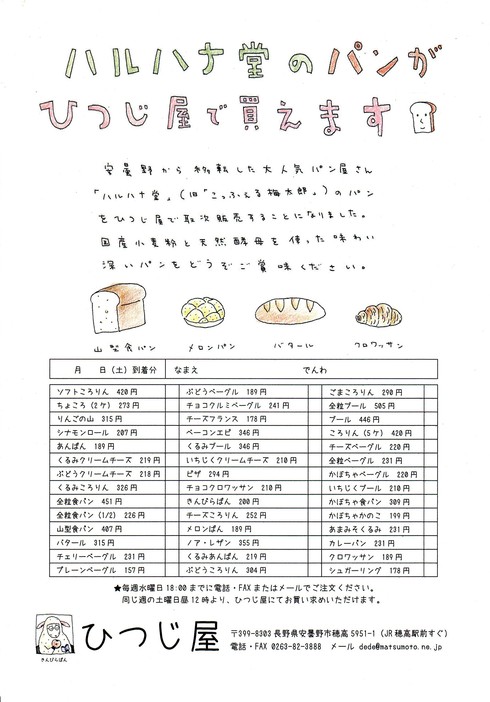 ハルハナ堂のパンが
ひつじ屋で買えます
安曇野から移転した大人気パン屋さん
「ハルハナ堂」(旧「こっふぇる梅太郎」)のパン
をひつじ屋で取次販売することになりました。
国産小麦粉と天然酵母を使った味わい
深いパンをどうぞご賞味ください。
山型食パン メロンパン バタール クロワッサン
月 日(土)到着分 なまえ でんわ
ソフトころりん 420円 ぶどうベーグル 189円 ごまころりん 290円
ちょころ(2ケ) 273円 チョコクルミベーグル 241円 全粒ブール 505円
りんごの山 315円 チーズフランス 178円 ブール 446円
シナモンロール 207円 ベーコンエピ 346円 ころりん(5ケ) 420円
あんぱん 189円 くるみブール 346円 チーズベーグル 220円
くるみクリームチーズ 219円 いちじくクリームチーズ 210円 全粒ベーグル 231円
ぶどうクリームチーズ 218円 ピザ 294円 かぼちゃベーグル 220円
くるみころりん 326円 チョコクロワッサン 210円 いちじくブール 210円
全粒食パン 451円 きんぴらぱん 200円 かぼちゃ食パン 309円
全粒食パン(1/2) 226円 チーズころりん 252円 かぼちゃかのこ 199円
山型食パン 407円 メロンぱん 189円 あまみそくるみ 231円
バタール 315円 ノア・レザン 355円 カレーパン 231円
チェリーベーグル 231円 くるみあんぱん 219円 クロワッサン 189円
プレーンベーグル 157円 ぶどうころりん 304円 シュガーリング 178円
★毎週水曜日18:00までに電話・FAXまたはメールでご注文ください。
同じ週の土曜日昼12時より、ひつじ屋にてお買い求めいただけます。
きんぴらぱん
ひつじ屋
〒399-8303 長野県安曇野市穂高5951-1(JR穂高駅前すぐ)
電話・FAX 0263-82-3888 メール dede@matsumoto.ne.jp